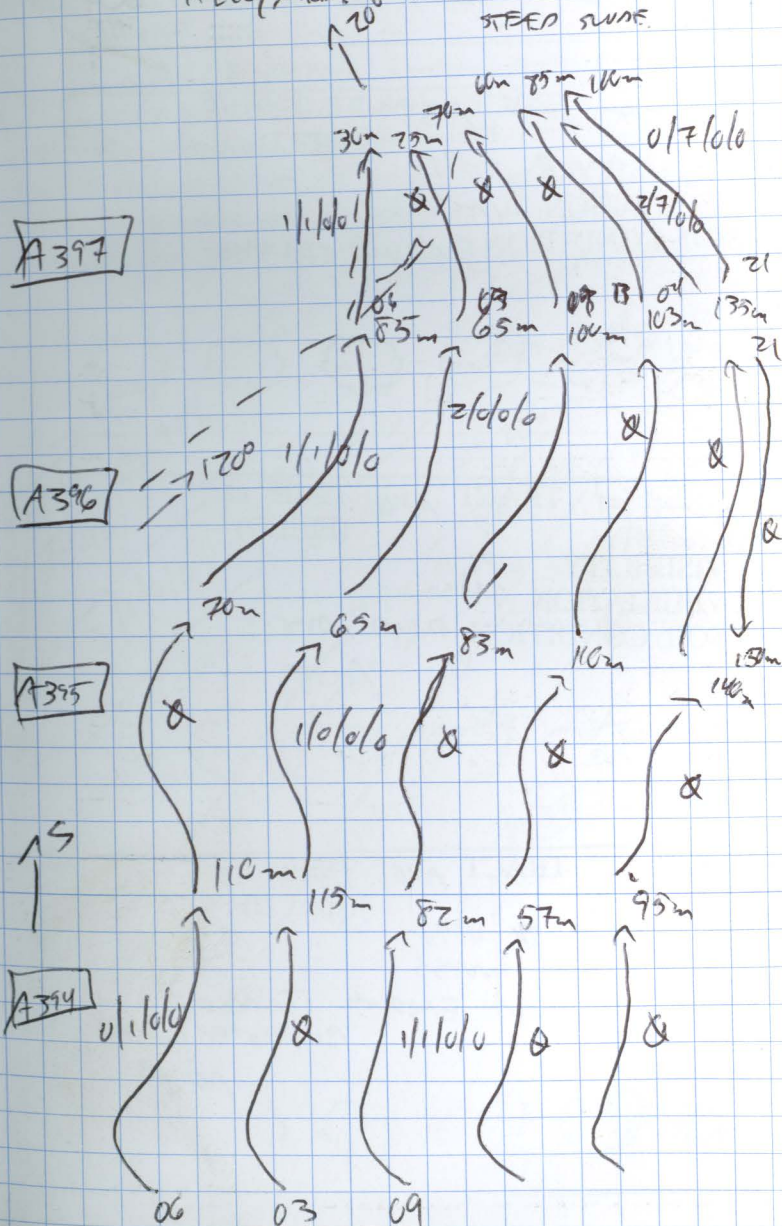 20
STEEP SLOPE
60m 85m 110m
70m
30m 25m
0/7/0/0
1/1/0/0
Ø Ø Ø
2/7/0/0
A397
21
06 03 04 135m
85m 65m 100m 103m
21
2/0/0/0
120° 1/1/0/0
Ø
Ø
A396
Ø
70m
65m
83m
110m
150m
A395
140m
Ø
1/0/0/0
Ø
Ø
Ø
5
110m
115m
82m
57m
95m
A394
0/1/0/0
Ø
1/1/0/0
Ø
Ø
06 03 09